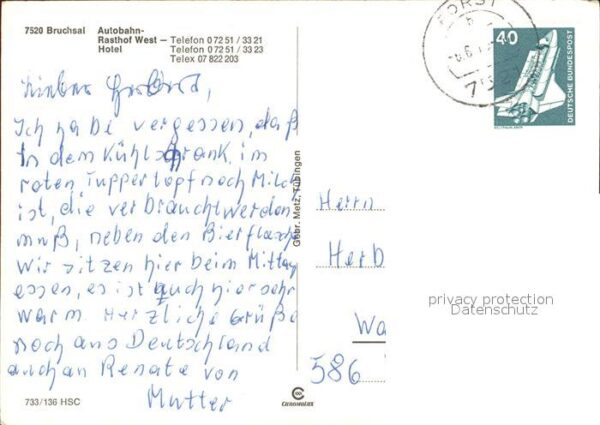 7520 Bruchsal Autobahn-
Rasthof West – Telefon 0 72 51 / 33 21
Hotel – Telefon 0 72 51 / 33 23
Telex 07 822 203
Ich habe vergessen, daß
in dem Kühlschrank im
roten Tuppertopf noch Milch
ist, die verbraucht werden
muß, neben den Bierflasche
Wir sitzen hier beim Mittag
essen, es ist auch hier sehr
warm Herzliche Grüße
noch aus Deutschland
auch an Renate von
Mutter
733/136 HSC
Gebr. Metz, Tübingen
FORST
40
DEUTSCHE BUNDESPOST
Herrn
Herb
Wa
586
privacy protection
Datenschutz